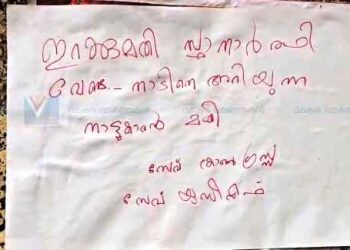 ഇറക്കുമതി സ്ഥാനാർത്ഥി
വേണ്ട - നാടിനെ അറിയുന്ന
നാട്ടുകാരൻ മതി
സേവ് കോൺഗ്രസ്സ്
സേവ് യുഡിഎഫ്